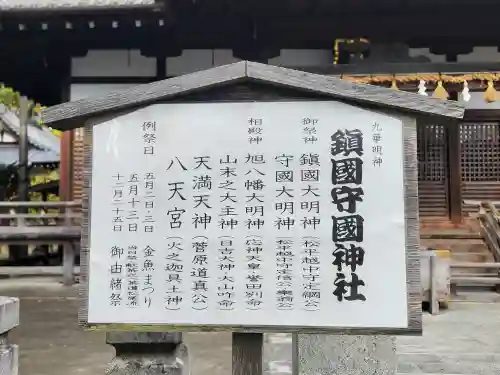 九華唄神
鎮國守國神社
御祭神
鎮國大明神(松平越中守定綱公)
守國大明神(松平越中守定信公・樂翁公)
相殿神
旭八幡大明神(応神天皇・菟田別命)
山末之大主神(日吉大神・大山咋命)
天満天神(菅原道真公)
八天宮(火之迦具土神)
例祭日
五月二日・三日 金魚まつり
五月十三日
十二月二十五日 御由緒祭